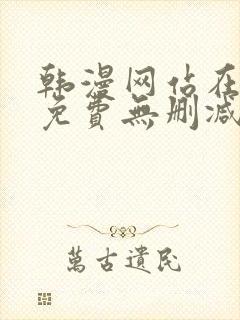 韩漫网站在
免費無删减
萬古遺民